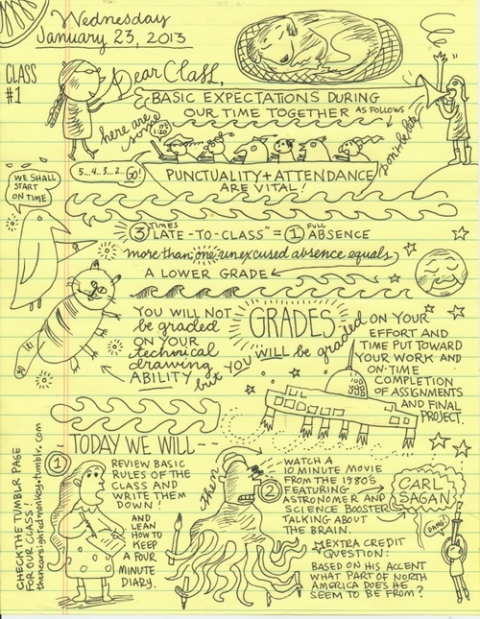 Wednesday
January 23, 2013
CLASS
#1
Dear Class,
here are some
BASIC EXPECTATIONS DURING
OUR TIME TOGETHER AS FOLLOWS
don't be late
5...4..3..2.. Go!
PUNCTUALITY + ATTENDANCE
ARE VITAL!
WE SHALL
START
ON TIME
3 TIMES "LATE-TO-CLASS" = 1 FULL ABSENCE
more than one unexcused absence equals
A LOWER GRADE
YOU WILL NOT
be graded
ON YOUR
technical
drawing
ABILITY but
GRADES
YOU WILL be graded ON YOUR
EFFORT AND
TIME PUT TOWARD
YOUR WORK AND
ON-TIME
COMPLETION
OF ASSIGNMENTS
AND FINAL
PROJECT.
TODAY WE WILL --
1 REVIEW BASIC
RULES OF THE
CLASS AND
WRITE THEM
DOWN!
AND
LEARN
HOW TO
KEEP
A FOUR
MINUTE
DIARY.
then
2
WATCH A
10 MINUTE MOVIE
FROM THE 1980'S
FEATURING
ASTRONOMER AND
SCIENCE BOOSTER
TALKING ABOUT
THE BRAIN.
CARL
SAGAN
DANG!
EXTRA CREDIT
QUESTION:
BASED ON HIS ACCENT
WHAT PART OF NORTH
AMERICA DOES HE
SEEM TO BE FROM?
CHECK THE TUMBLR PAGE
FOR OUR CLASS
thenearsightedmonkey.tumblr.com